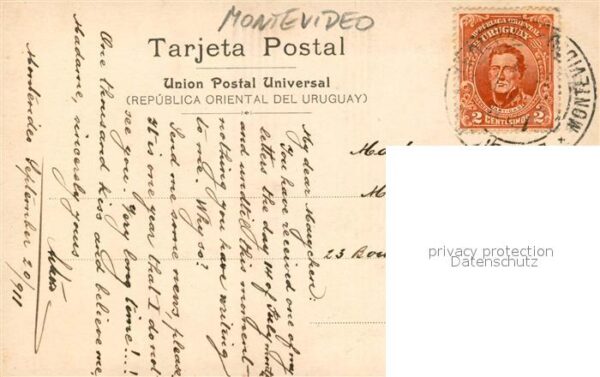 MONTEVIDEO
Tarjeta Postal
Union Postal Universal
(REPÚBLICA ORIENTAL DEL URUGUAY)
REPUBLICA ORIENTAL
URUGUAY
2 CENTESIMOS 2
MONTEVID
My dear
You have received one of my
letters the day 14 of July
and until this moment
nothing you have writing
to me. Why so?
Send me some news please,
It is one year that I do not
see you. Very long time!...!
One thousand kiss and believe me,
Madame, sincerely yours
Montevideo September 20/911
23
privacy protection
Datenschutz